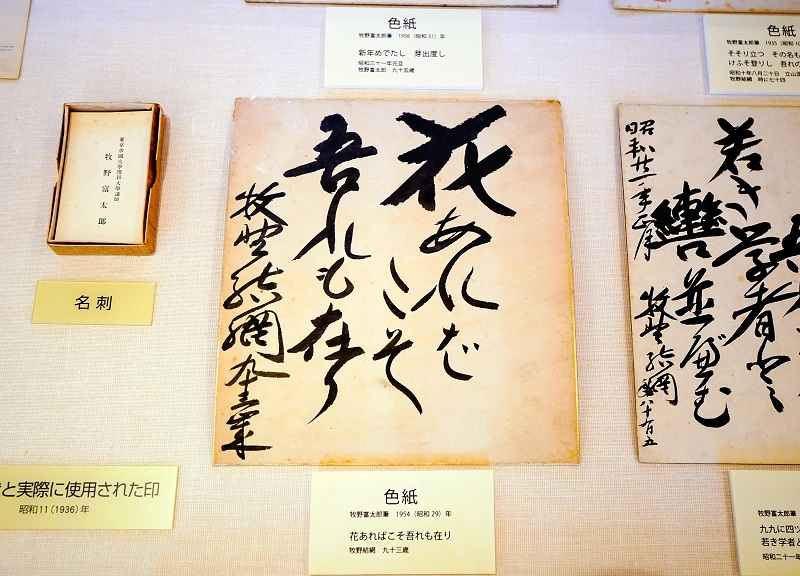 色紙
牧野富太郎筆 1956(昭和31)年
新年めでたし 芽出度し
昭和三十一年元旦
牧野富太郎 九十五歳
色紙
牧野富太郎筆 1935(昭和10
そそり立つ その名も
けふそ登りし 吾れの
昭和十年八月二十日 立山
牧野結網 時に七十四
東京帝國大學理科大學講師
牧野富太郎
名刺
花あれば
こそ
吾れも在り
牧野結網 九十三歳
若き学者と
轡並べ
昭和廿一年正月
牧野結網
と実際に使用された印
昭和11(1936)年
色紙
牧野富太郎筆 1954(昭和29)年
花あればこそ吾れも在り
牧野結網 九十三歳
牧野富太郎筆
九九に四ツ
若き学者と
昭和二十一年